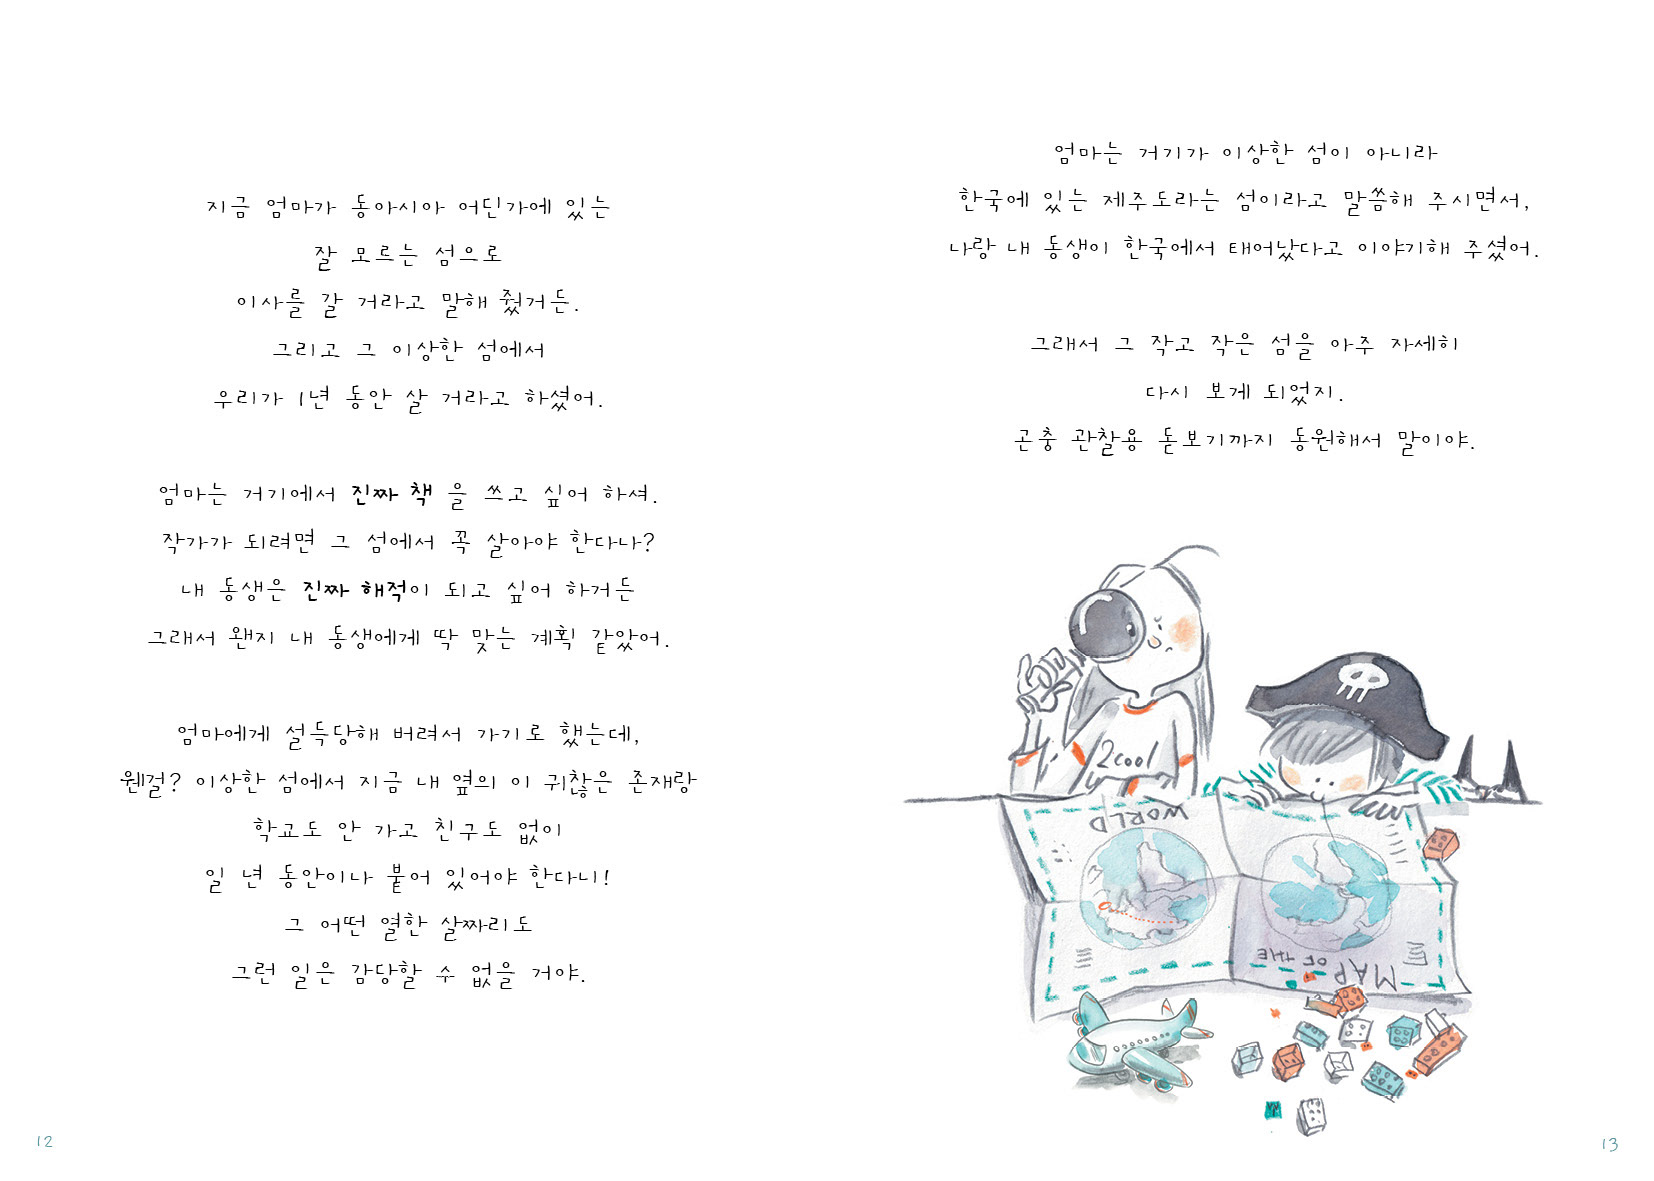 지금 엄마가 동아시아 어딘가에 있는
잘 모르는 섬으로
이사를 갈 거라고 말해 줬거든.
그리고 그 이상한 섬에서
우리가 1년 동안 살 거라고 하셨어.
엄마는 거기에서 진짜 책 을 쓰고 싶어 하셔.
작가가 되려면 그 섬에서 꼭 살아야 한다나?
내 동생은 진짜 해적이 되고 싶어 하거든
그래서 왠지 내 동생에게 딱 맞는 계획 같았어.
엄마에게 설득당해 버려서 가기로 했는데,
웬걸? 이상한 섬에서 지금 내 옆의 이 귀찮은 존재랑
학교도 안 가고 친구도 없이
일 년 동안이나 붙어 있어야 한다니!
그 어떤 열한 살짜리도
그런 일은 감당할 수 없을 거야.
12
엄마는 거기가 이상한 섬이 아니라
한국에 있는 제주도라는 섬이라고 말씀해 주시면서,
나랑 내 동생이 한국에서 태어났다고 이야기해 주셨어.
그래서 그 작고 작은 섬을 아주 자세히
다시 보게 되었지.
곤충 관찰용 돋보기까지 동원해서 말이야.
2cool
MAP OF THE
WORLD
13